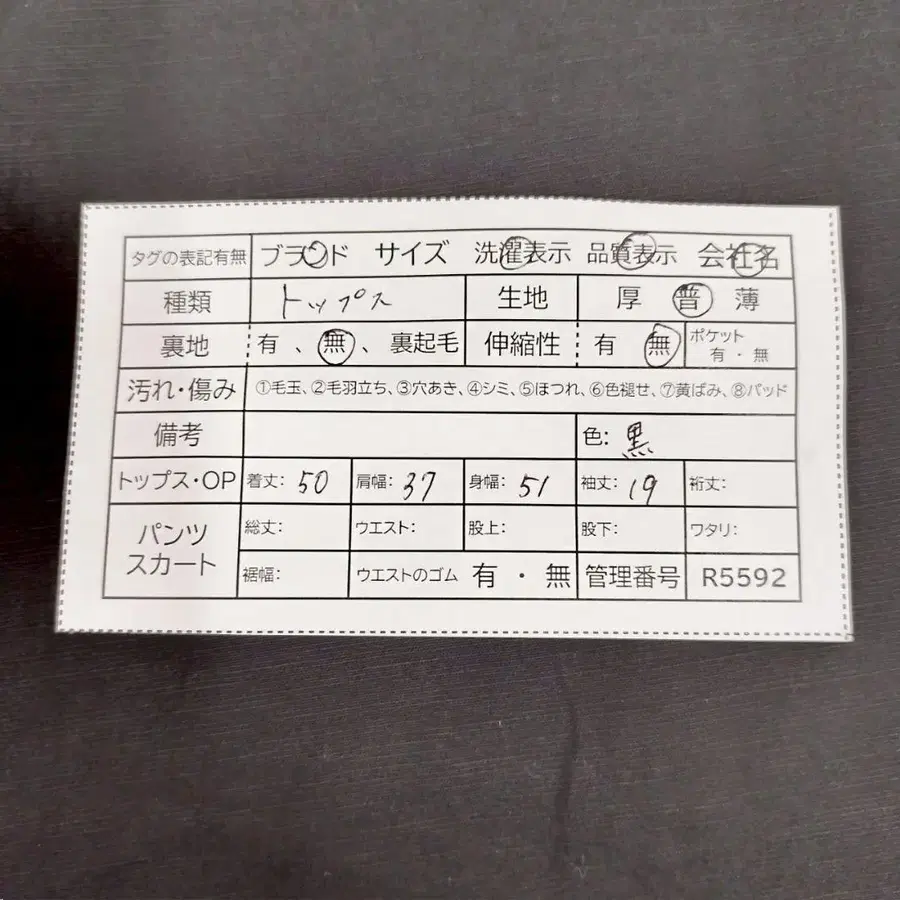 タグの表記有無 ブランド サイズ 洗濯表示 品質表示 会社名
種類 トップス 生地 厚 普 薄
裏地 有 、 無 、 裏起毛 伸縮性 有 無 ポケット 有 ・ 無
汚れ・傷み ①毛玉、②毛羽立ち、③穴あき、④シミ、⑤ほつれ、⑥色褪せ、⑦黄ばみ、⑧パッド
備考 色: 黒
トップス・OP 着丈: 50 肩幅: 37 身幅: 51 袖丈: 19 裄丈:
パンツ スカート 総丈: ウエスト: 股上: 股下: ワタリ:
裾幅: ウエストのゴム 有 ・ 無 管理番号 R5592